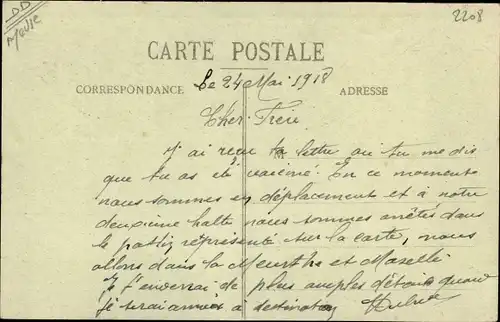 DD
Meuse
2208
CARTE POSTALE
CORRESPONDANCE
ADRESSE
Le 24 Mai 1918
Cher Frère
J'ai reçu ta lettre ou tu me dis
que tu as été vaciné. En ce moment
nous sommes en déplacement et à notre
deuxième halte nous sommes arrêtés dans
le patliz réprésenté sur la carte, nous
allons dans la Meurthe et Moselle
Je t'enverrai de plus amples détails quand
je serai arrivé à destination